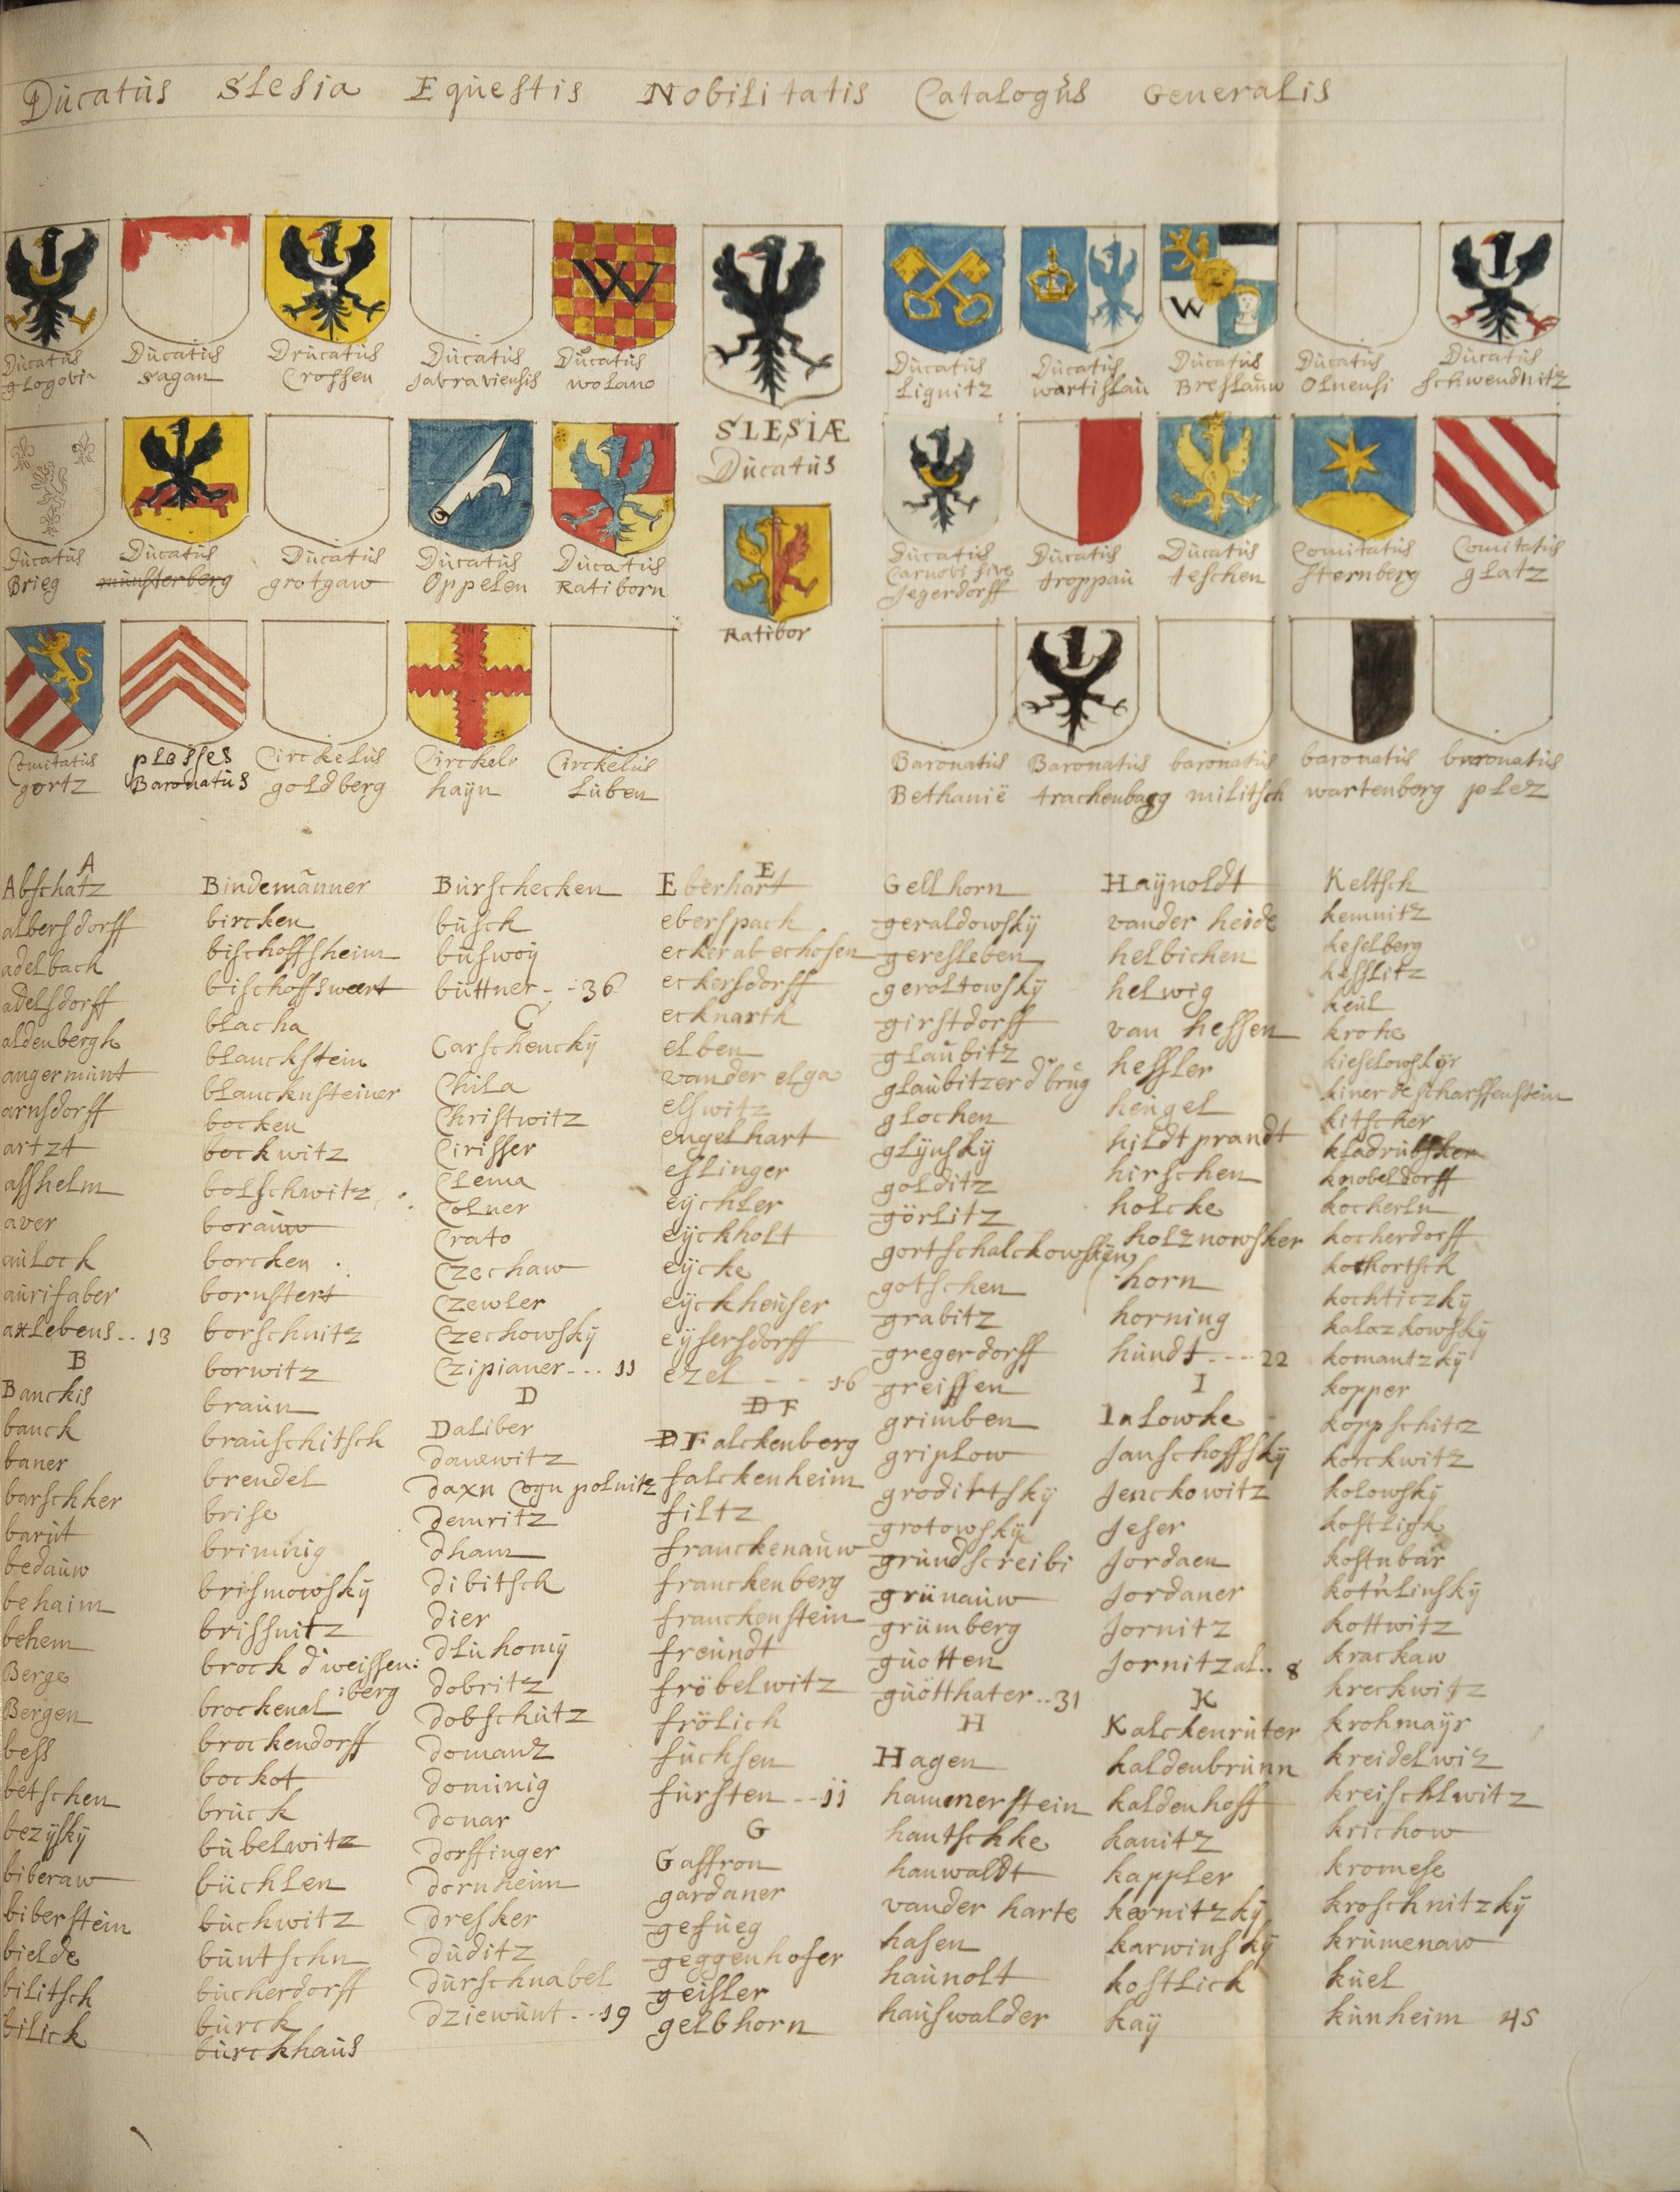 Ducatus Slesia Equestis Nobilitatis Catalogus Generalis
Ducatus glogovia
Ducatus sagan
Drucatus Crossen
Ducatus Javraviensis
Ducatus wolano
SLESIÆ
Ducatus
Ducatus Lignitz
Ducatus wartislau
Ducatus Breslauw
Ducatus Olnensi
Ducatus schwendnitz
Ducatus Brieg
Ducatus munsterberg
Ducatus grotgaw
Ducatus Oppelen
Ducatus Ratiborn
Ratibor
Ducatus Carnovi sive Jegerdorff
Ducatus troppau
Ducatus teschen
Comitatus sternberg
Comitatus glatz
Comitatus gortz
plesses Baronatus
Circkelus goldberg
Circkels hayn
Circkelus Luben
Baronatus Bethanië
Baronatus trachenbagg
baronatus militsch
baronatus wartenborg
baronatus plez
A
Abschatz
albersdorff
adelback
adelsdorff
aldenbergh
angermunt
arnsdorff
artzt
asshelm
aver
aulock
aurifaber
axlebens.. 13
B
Banckis
banck
baner
barschker
barut
bedauw
behaim
behem
Berge
Bergen
bess
betschen
bezijskÿ
biberaw
biberstein
bielde
bilitsch
bilick
Bindemanner
bircken
bischoffsheim
bischoffsweert
blacha
blanckstein
blancknsteiner
bocken
bockwitz
bolschwitz
borauw
borcken
bornstert
borschnitz
borwitz
braun
brauschitsch
brendel
brise
brimnig
brismowskÿ
brissnitz
brock d'weissen:
:berg
brockenal
brockendorff
bockot
bruck
bubelwitz
büchlen
buchwitz
buntschn
bucherdorff
burck
burckhaus
Burschecken
busck
buswoÿ
büttner - : 36
C
Carschenckÿ
Chila
Christwitz
Cirisser
Clema
Colner
Crato
Czechaw
Czewler
Czechowskÿ
Czipianer... 11
D
Daliber
danewitz
daxn Cogn polnitz
demritz
dham
dibitsch
dier
dluhomÿ
dobritz
dobschutz
domanz
dominig
donar
dorffinger
dornheim
dresker
duditz
durschnabel
dziewunt - - 19
E
Eberhart
eberspach
eckerabechosen
eckersdorff
ecknarth
elben
vander elga
elswitz
engelhart
eslinger
eÿchler
eÿckholt
eÿcke
eÿckheuser
eÿsersdorff
ezel - - 16
D F
DFalckenberg
falckenheim
filtz
franckenauw
franckenberg
franckenstein
freundt
fröbelwitz
frölich
fuchsen
fursten - - 11
G
Gaffron
gardaner
gefueg
geggenhofer
geisler
gelbhorn
Gellhorn
geraldowskÿ
geresleben
geroltowskÿ
girstdorff
glaubitz
glaubitzer d'brug
glochen
glÿnskÿ
golditz
görlitz
gortschalckowskÿen
gotschen
grabitz
gregerdorff
greiffen
grimben
griplow
groditskÿ
grotowskÿ
grundscreibi
grünauw
grümberg
guotten
guötthater..31
H
Hagen
hamerstein
hantschke
hanwaldt
vander harte
hasen
haunolt
hauswalder
Haÿnoldt
vander heide
helbichen
helwig
van hessen
hessler
heugel
hildtprandt
hirschen
holcke
holznowsker
horn
horning
hundt.---22
I
Jalowke
Janschoffskÿ
Jenckowitz
Jeser
Jordaen
Jordaner
Jornitz
Jornitzal.. 8
K
Kalckenruter
kaldenbrunn
kaldenhoff
kanitz
kappler
karnitzkÿ
karwinskÿ
kostlick
kaÿ
Keltsch
kemnitz
keselberg
kesslitz
keul
krohe
kieselowskÿr
kiner de scharffenstein
kitscher
kladrubsker
knobeldorff
kocherln
kocherdorff
kotkortsch
kochticzkÿ
kalozkowskÿ
komantzkÿ
kopper
koppschitz
korckwitz
kolowskÿ
kostlich
kostnbar
kotulinskÿ
kottwitz
krackaw
kreckwitz
krohmaÿr
kreidelwiz
kreischlwitz
krichow
kromese
kroschnitzkÿ
krumenaw
kuel
kunheim 45